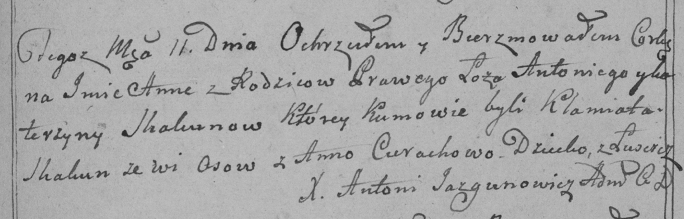 Tegoż Msa 11. Dnia Ochrzciłem y Bierzmowałem Corkę
na Imie Anne z Rodzicow Prawego Łoża Antoniego y Ka-
terzyny Skakunow Ktorey Kumowie byli
Skakun ze wi Osow z Anno Curachowo. Dziecko, z
X. Antoni Jazgunowicz Adm C D